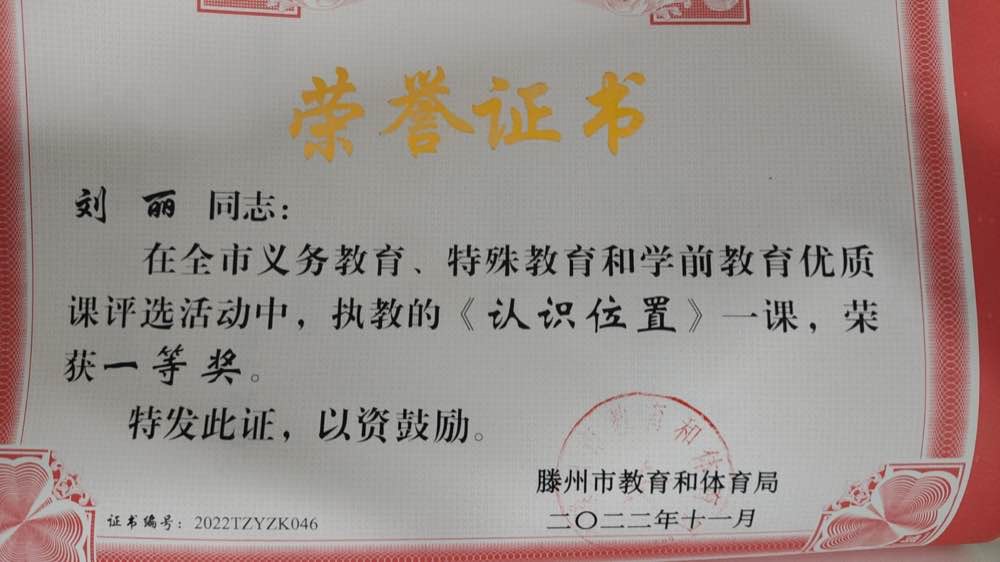 荣誉证书
刘 丽 同志：
在全市义务教育、特殊教育和学前教育优质
课评选活动中，执教的《认识位置》一课，荣
获一等奖。
特发此证，以资鼓励。
滕州市教育和体育局
二〇二二年十一月
证书编号：2022TZYZK046